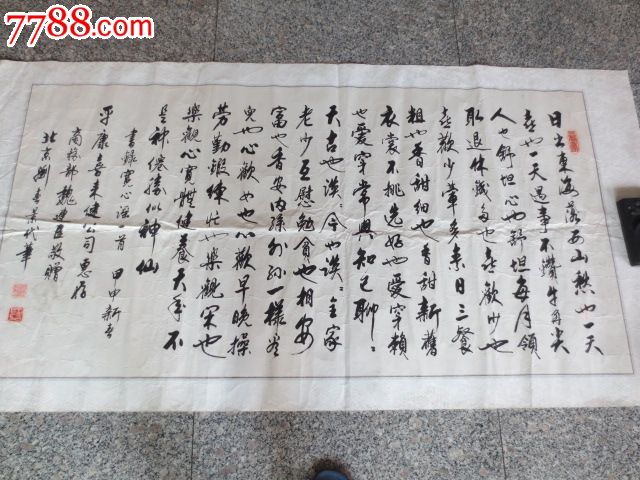 7788.com
日出東海落西山愁也一天
喜也一天遇事不鑽牛角尖
人也舒坦心也舒坦每月領
取退休錢多也喜歡少也
喜歡少葷多素日三餐
粗也香甜細也香甜新舊
衣裳不挑選好也愛穿賴
也愛穿常與知己聊聊
天古也談談今也談談全家
老少互慰勉貧也相安
富也相安內孫外孫一樣看
兒也心歡女也心歡早晚操
勞勤鍛練忙也樂觀閑也
樂觀心寬體健養天年不
是神仙勝似神仙
書錄寬心謠一首 甲申新春
平康喜来健公司惠存
商務部魏建国敬贈